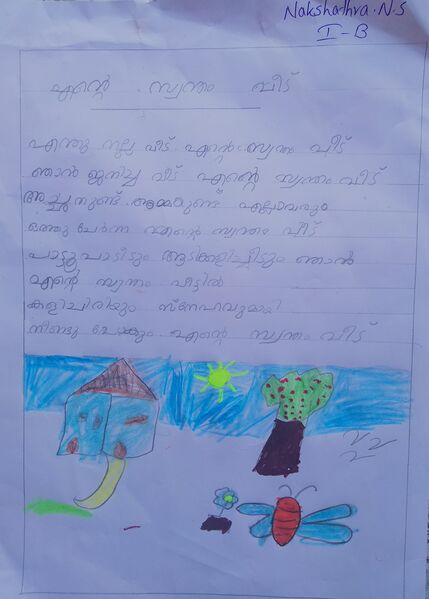 Nakshathra.N.S
I-B
എന്റെ സ്വന്തം വീട്
എന്തു നല്ല വീട് എന്റെ സ്വന്തം വീട്
ഞാൻ ജനിച്ച വീട് എന്റെ സ്വന്തം വീട്
അച്ഛനുണ്ട് അമ്മയുണ്ട് എല്ലാവരും
ഒത്തു ചേർന്ന എന്റെ സ്വന്തം വീട്
പാട്ടുപാടീട്ടും ആടിക്കളിച്ചീട്ടും ഞാൻ
എന്റെ സ്വന്തം വീട്ടിൽ
കളിചിരിയും സ്നേഹവുമായി
നീണ്ടു പോകും എന്റെ സ്വന്തം വീട്